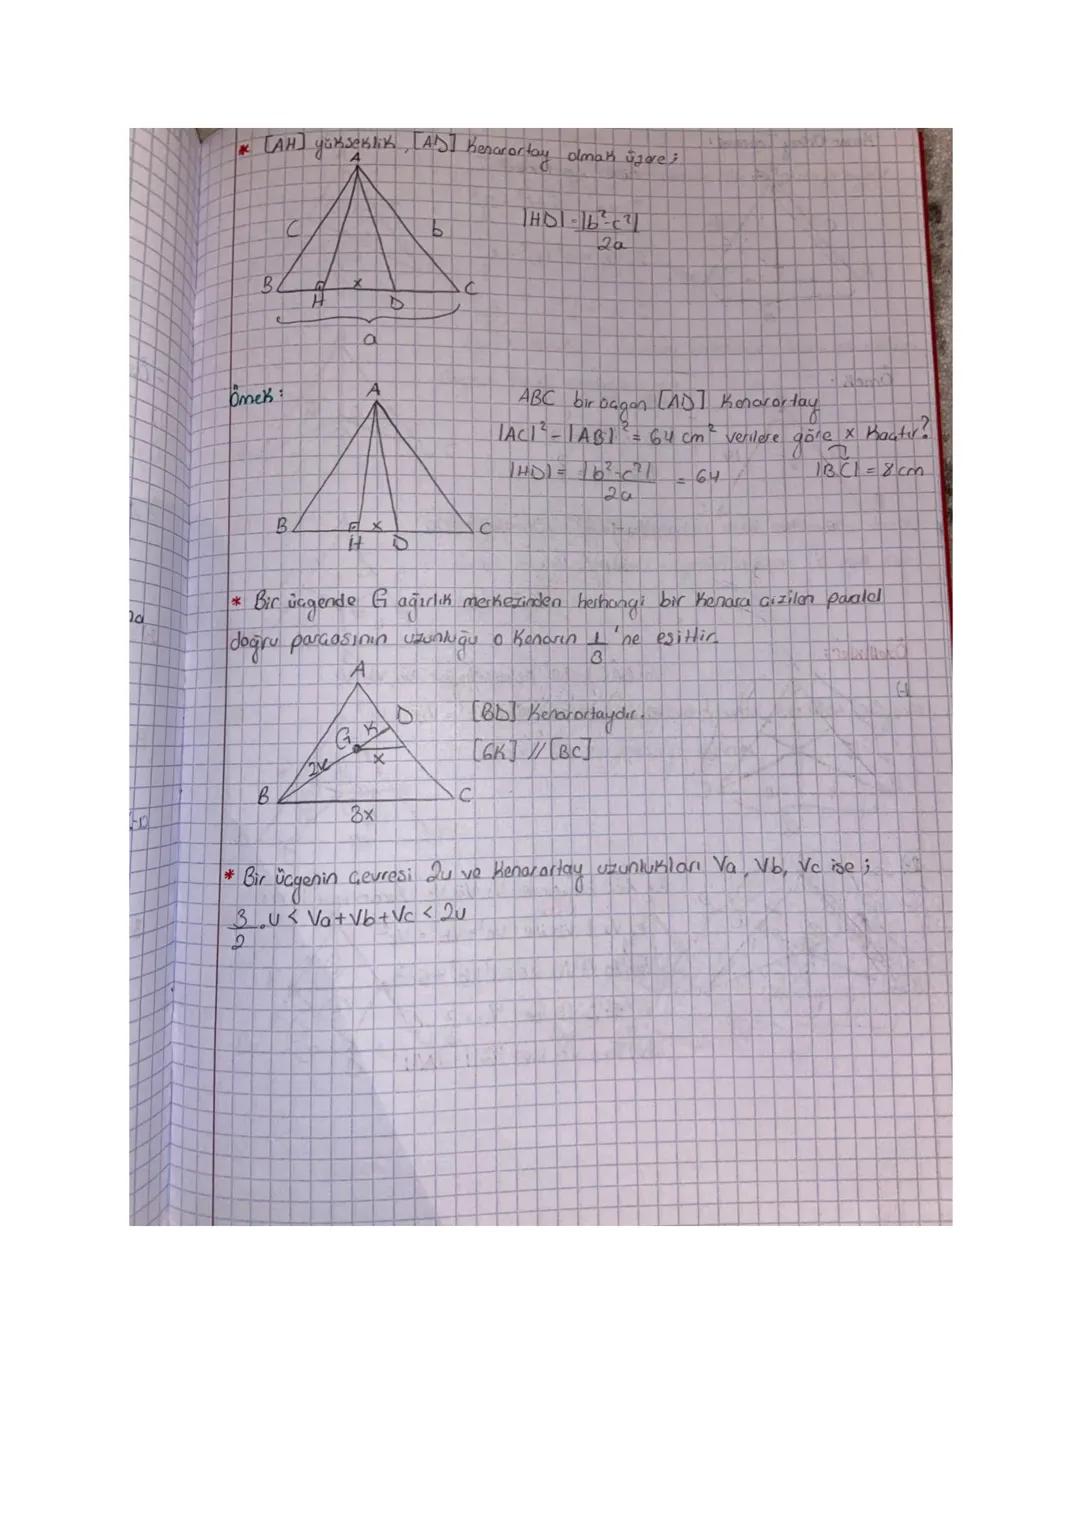 * [AH] yükseklik, [AD] Kenarortay olmak üzere;
A
C
b
|HD| = |b²-c²|
2a
B
H
x
D
C
a
Örnek:
A
ABC bir üçgen [AD] Kenarortay
|AC|² - |AB|² = 64 cm² verilere göre x Kaçtır?
|HD| = |b²-c²| = 64
2a
|BC| = 8 cm
B
H
x
D
C
* Bir üçgende G ağırlık merkezinden herhangi bir Kenara çizilen paralel
doğru parçasının uzunluğu o Kenarın 1 'ne eşittir.
3
A
D
[BD] Kenarortaydır.
G
K
[GK] // [BC]
2K
x
B
C
3x
* Bir üçgenin Çevresi 2u ve Kenarortay uzunlukları Va, Vb, Vc ise;
3 .u < Va+Vb+Vc < 2u
2